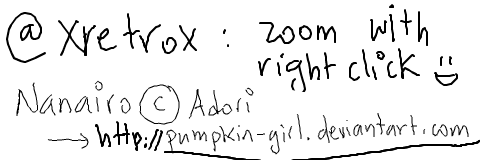 @ Xretrox : zoom with
right click ü
Nanairo © Adori
→ http://pumpkin-girl.deviantart.com